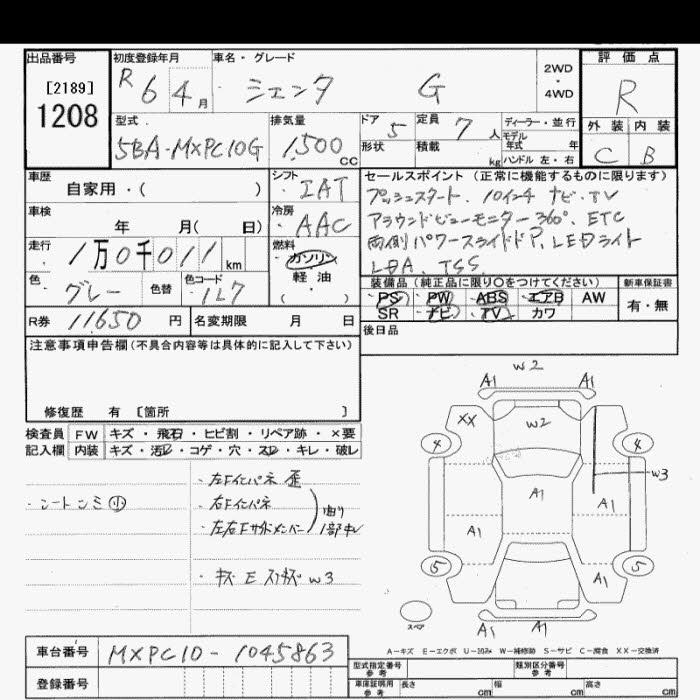 出品番号 初度登録年月 車名・グレード 2WD ・ 4WD 評価点
[2189] R 6 4月 シエンタ G R
1208
型式 排気量 ドア 定員 ディーラー・並行 外装 内装
5BA-MXPC10G 1,500cc 5 7人 モデル年式 年 C B
形状 積載 kg ハンドル 左・右
車歴 シフト セールスポイント (正常に機能するものに限ります)
自家用・( ) IAT プッシュスタート. 10インチ ナビ・TV
車検 冷房 アラウンドビューモニター 360°. ETC
年 月( 日) AAC 両側パワースライドドア. LEDライト
走行 燃料 LDA. TSS.
1万0千011km ガソリン
軽油
( )
色 色替 色コード 装備品 (純正品に限り○をつけてください) 新車保証書
グレー 1L7 PS PW ABS エアB AW 有・無
SR ナビ TV カワ
R券 11,650円 名変期限 月 日 後日品
注意事項申告欄(不具合内容等は具体的に記入して下さい)
修復歴 有 [箇所 ]
検査員 FW キズ・飛石・ヒビ割・リペア跡・×要
記入欄 内装 キズ・汚・コゲ・穴・スレ・キレ・破レ
・左Fインパネ 歪
・シートシミ 小 ・右Fインパネ
・左右Fサイドメンバー 曲り
・キズ E スリキズ W3
W2
A1 A1
XX W2
4 4
W3
A1 A1
A1
5 5
A1
スペア A1 A1
A-キズ E-エクボ U-凹み W-補修跡 S-サビ C-腐食 XX-交換済
車台番号 MXPC10-1045863
型式指定番号 参考 類別区分番号 参考
登録番号 車庫証明用 参考 長さ cm 幅 cm 高さ cm